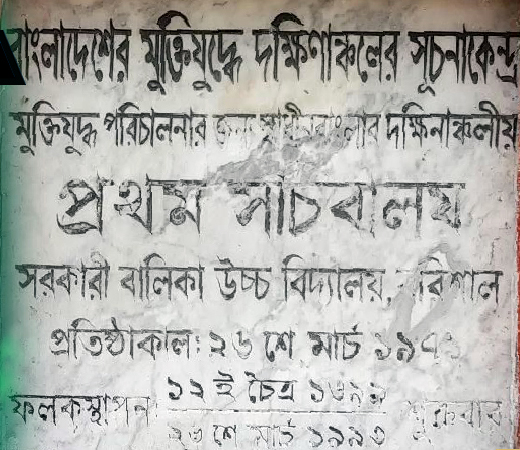 বাংলাদেশের মুক্তিযুদ্ধে দক্ষিণাঞ্চলের সূচনাকেন্দ্র
মুক্তিযুদ্ধ পরিচালনার জন্য স্বাধীনবাংলার দক্ষিনাঞ্চলীয়
প্রথম সচিবালয়
সরকারী বালিকা উচ্চ বিদ্যালয়, বরিশাল
প্রতিষ্ঠাকাল: ২৬ শে মার্চ ১৯৭১
ফলকস্থাপন: ১২ ই চৈত্র
২৬ শে মার্চ ১৯৯৩ শুক্রবার